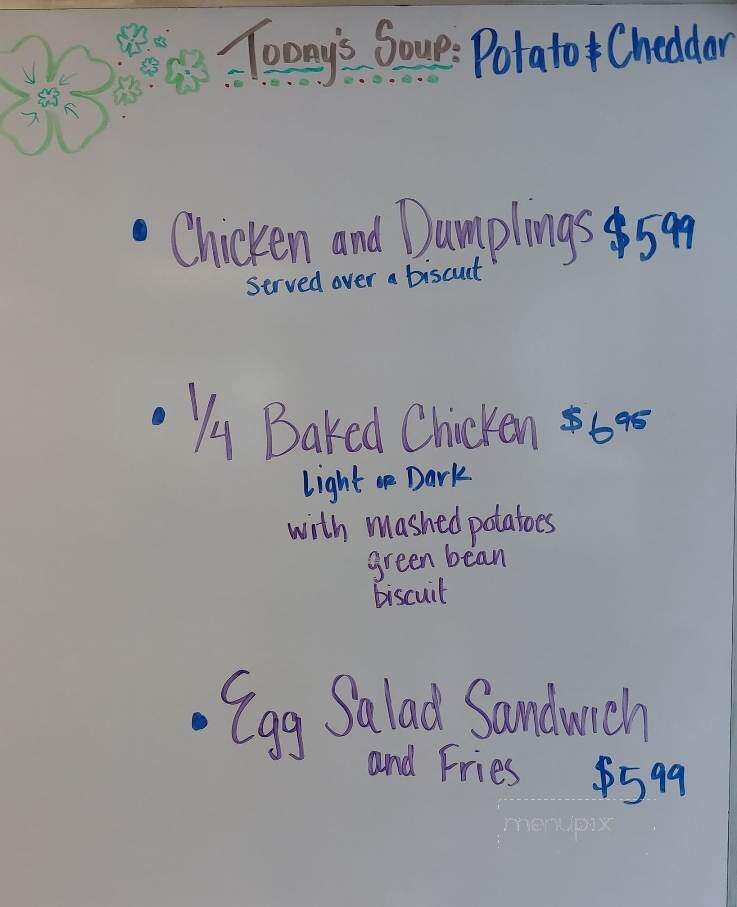 Today's Soup: Potato & Cheddar
• Chicken and Dumplings $5.99
served over a biscuit
• 1/4 Baked Chicken $6.95
Light or Dark
with mashed potatoes
green bean
biscuit
• Egg Salad Sandwich
and Fries $5.99
menupix